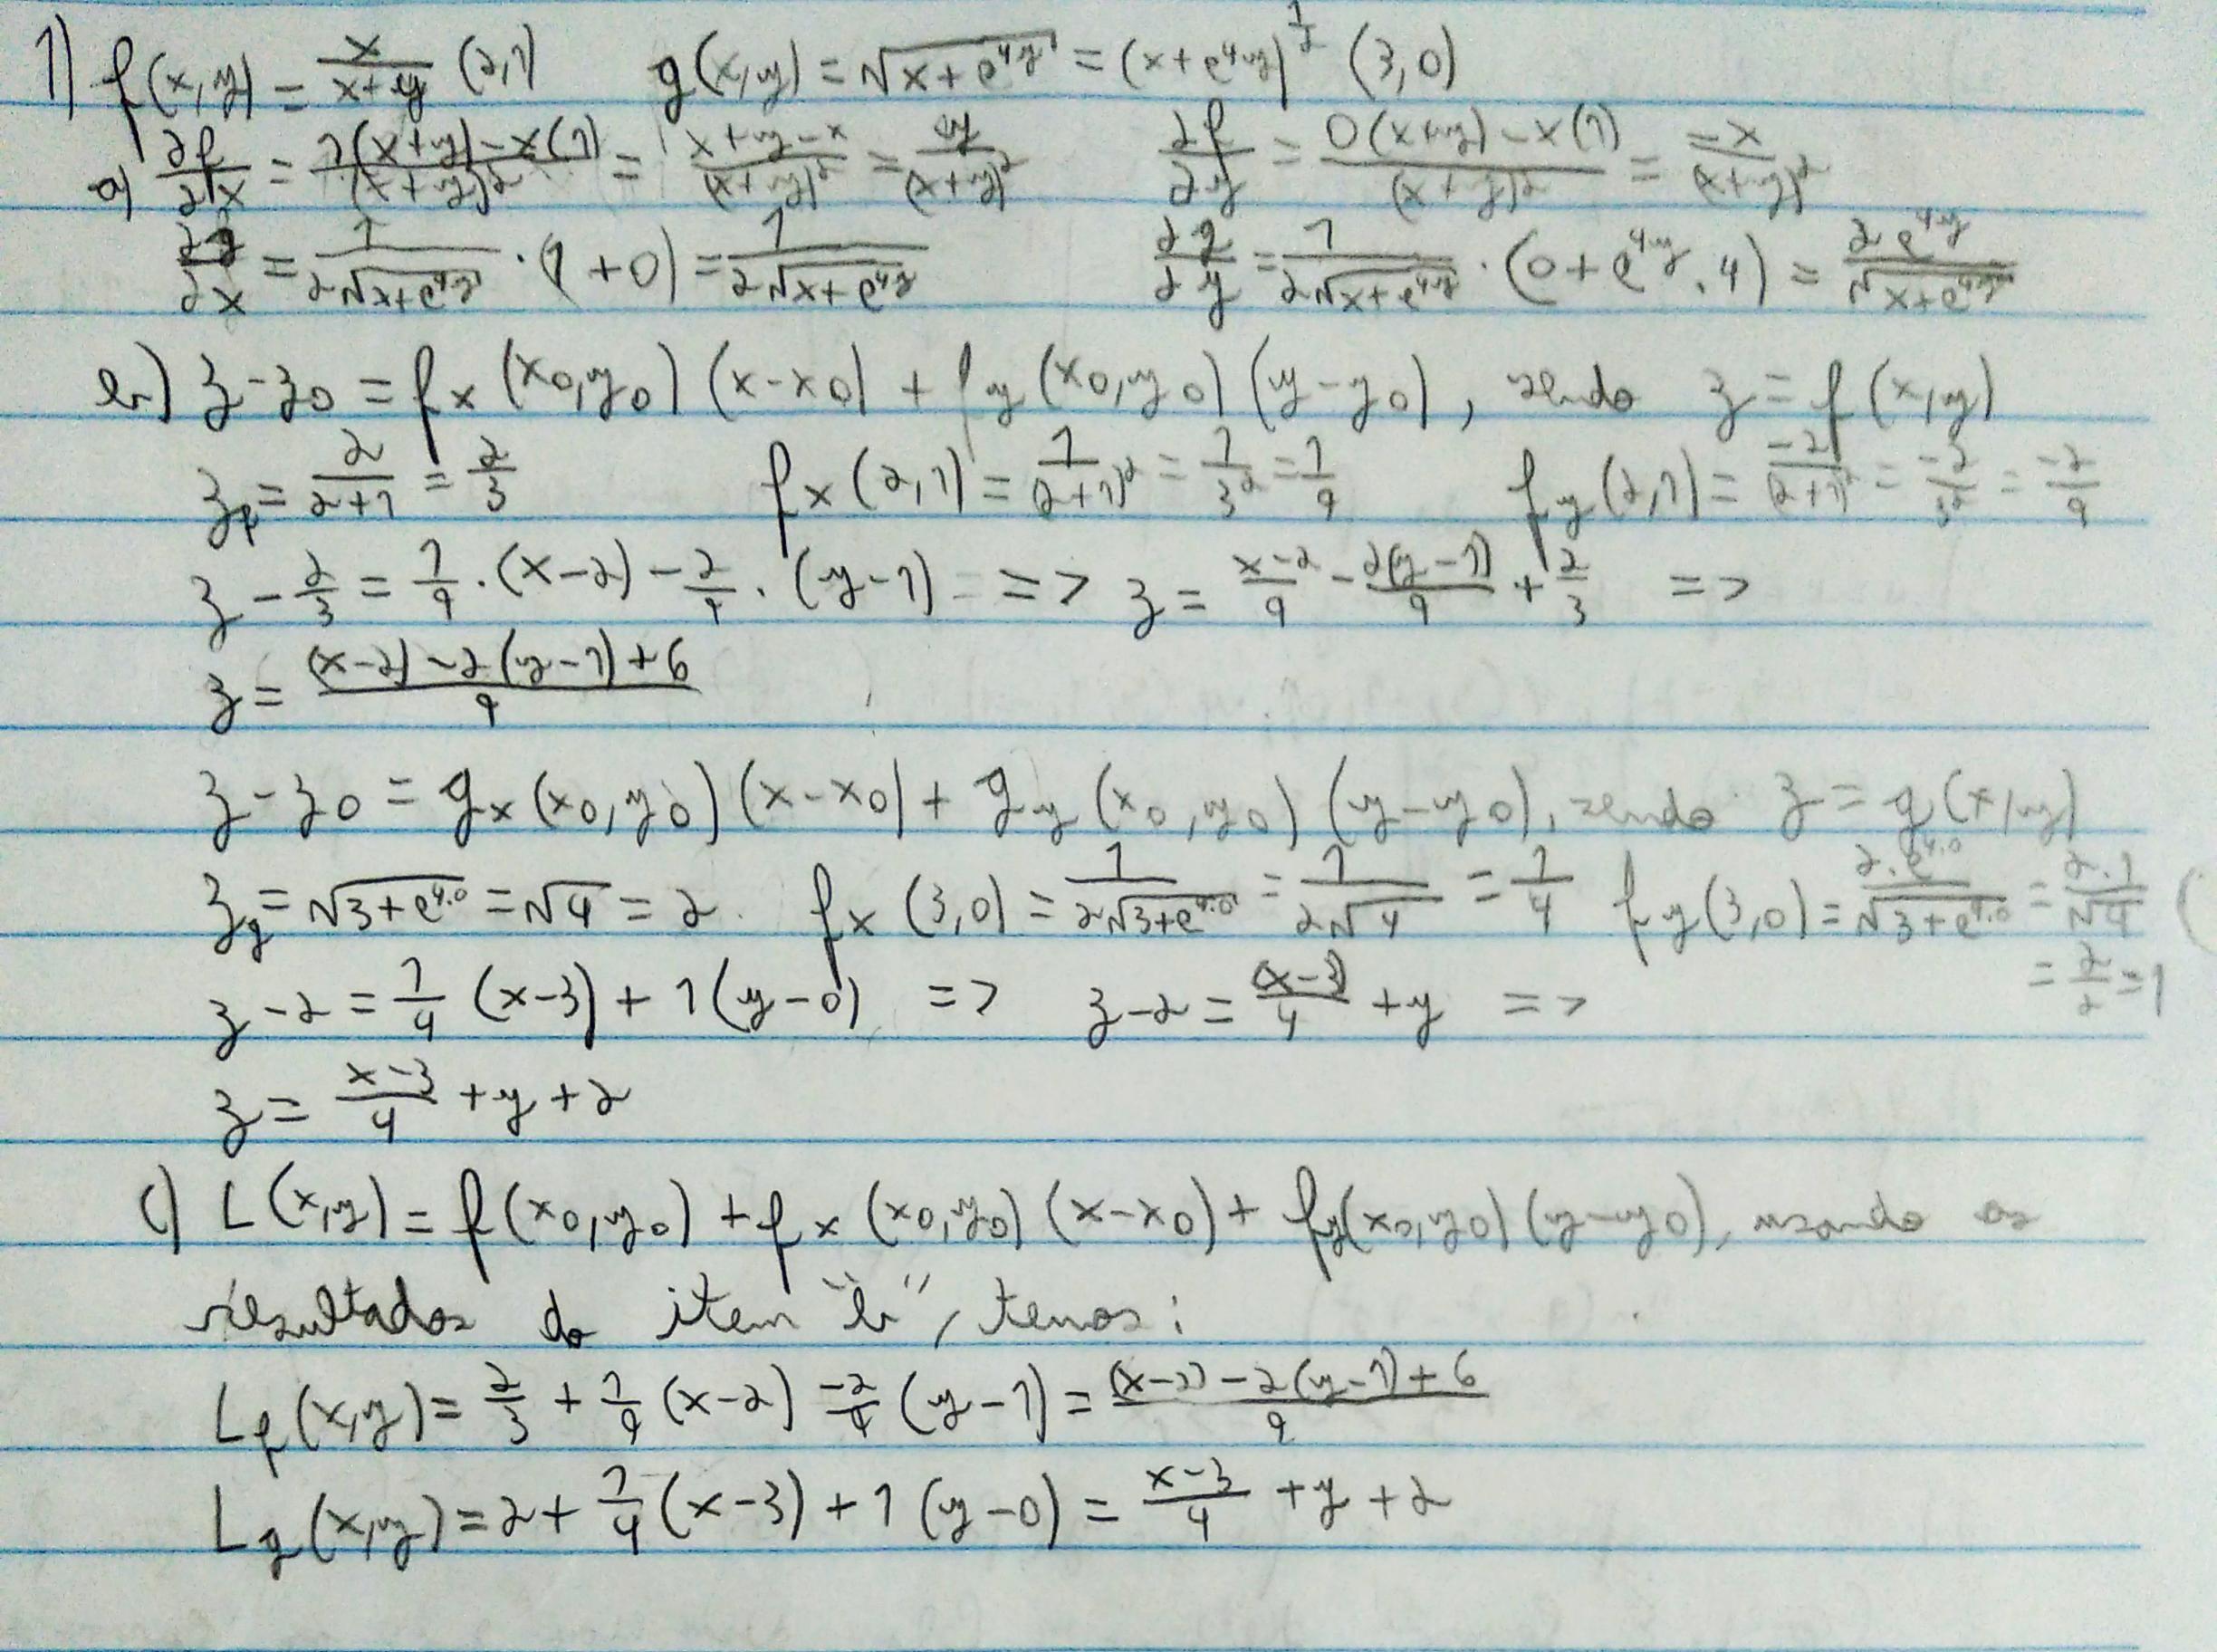 1) f(x,y) = x/(x+y) (2,1) g(x,y) = √(x+e^(4y)) = (x+e^(4y))^(1/2) (3,0)
a) ∂f/∂x = (1(x+y)-x(1))/(x+y)² = (x+y-x)/(x+y)² = y/(x+y)² ∂f/∂y = (0(x+y)-x(1))/(x+y)² = -x/(x+y)²
∂g/∂x = 1/(2√(x+e^(4y))) · (1+0) = 1/(2√(x+e^(4y))) ∂g/∂y = 1/(2√(x+e^(4y))) · (0+e^(4y).4) = 2e^(4y)/√(x+e^(4y))
b) z-z₀ = fx(x₀,y₀)(x-x₀) + fy(x₀,y₀)(y-y₀), sendo z = f(x,y)
z_f = 2/(2+1) = 2/3 fx(2,1) = 1/(2+1)² = 1/3² = 1/9 fy(2,1) = -2/(2+1)² = -2/3² = -2/9
z - 2/3 = 1/9 · (x-2) - 2/9 · (y-1) => z = (x-2)/9 - 2(y-1)/9 + 2/3 =>
z = ((x-2)-2(y-1)+6)/9
z-z₀ = gx(x₀,y₀)(x-x₀) + gy(x₀,y₀)(y-y₀), sendo z = g(x,y)
z_g = √(3+e^(4.0)) = √4 = 2. fx(3,0) = 1/(2√(3+e^(4.0))) = 1/(2√4) = 1/4 fy(3,0) = 2.e^(4.0)/√(3+e^(4.0)) = 2.1/√4
= 2/2 = 1
z-2 = 1/4 (x-3) + 1(y-0) => z-2 = (x-3)/4 + y =>
z = (x-3)/4 + y + 2
c) L(x,y) = f(x₀,y₀) + fx(x₀,y₀)(x-x₀) + fy(x₀,y₀)(y-y₀), usando os
resultados do item "b", temos:
L_f(x,y) = 2/3 + 1/9 (x-2) -2/9 (y-1) = ((x-2)-2(y-1)+6)/9
L_g(x,y) = 2 + 1/4 (x-3) + 1(y-0) = (x-3)/4 + y + 2